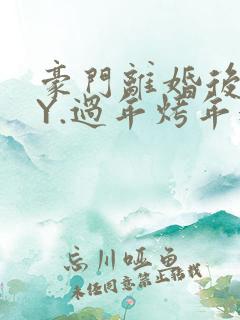 豪門離婚後
Y.過年烤年
忘川哑鱼
未经同意禁止转载